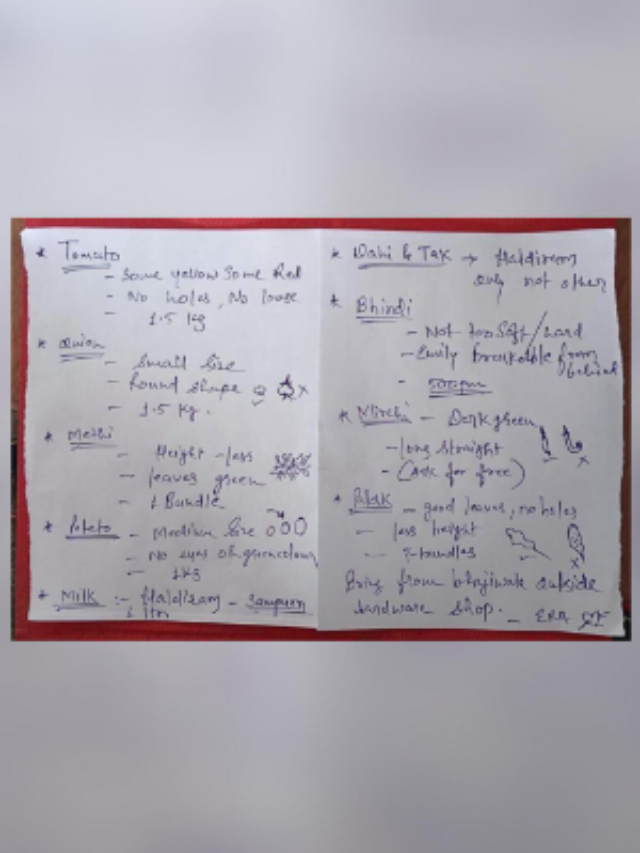 * Tomato
- Some yellow Some Red
- No holes, No loose
- 1.5 kg
* Onion
- Small Size
- Round Shape
- 1.5 kg.
* Methi
- Height - less
- leaves green
- 1 Bundle
* Potato - Medium Size
- No eyes or green colour
- 1 kg
* Milk :- Haldiram -
1 ltr
* Dahi & Tak → Haldiram
only not other
* Bhindi
- Not too Soft / hard
- Easily breakable from
behind
-
* Mirchi - Dark green
- long Straight
- (Ask for free)
* Palak - good leaves, no holes
- less height
- bundles
Bring from bhajiwala outside
hardware Shop. -